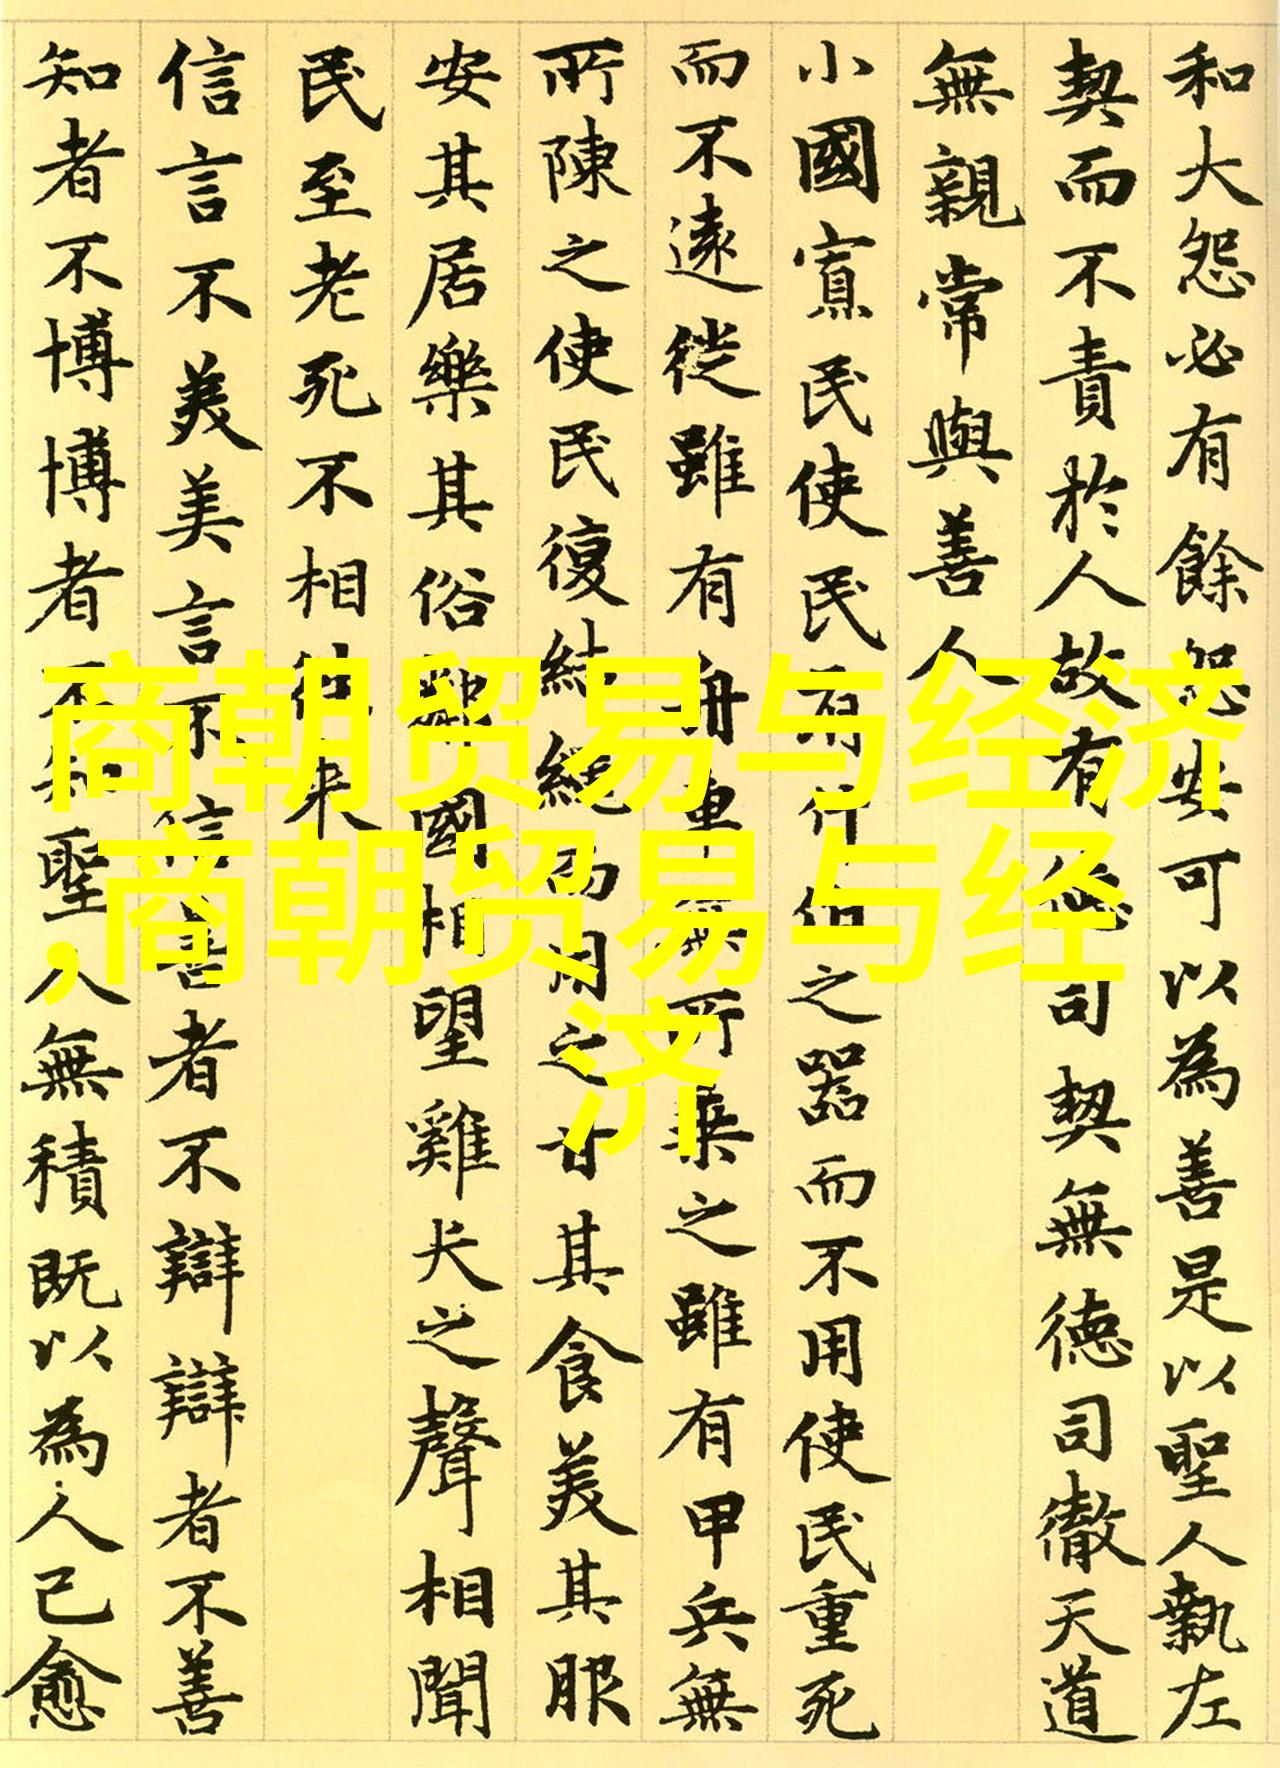 和大怨必有餘怨安可以為善是以聖人執左
契而不責於人故有德司契無德司徹天道
無親常與善人
小國寡民使民有什伯之器而不用使民重死
而不遠徙雖有舟車無所乗之雖有甲兵無
所陳之使民復結繩而用之甘其食美其服
安其居樂其俗鄰國相望雞犬之聲相聞
民至老死不相往来
信言不美美言不信善者不辯辯者不善
知者不博博者不知聖人無積既以為人己愈
商朝贸易与经济
,商朝贸易与经
济